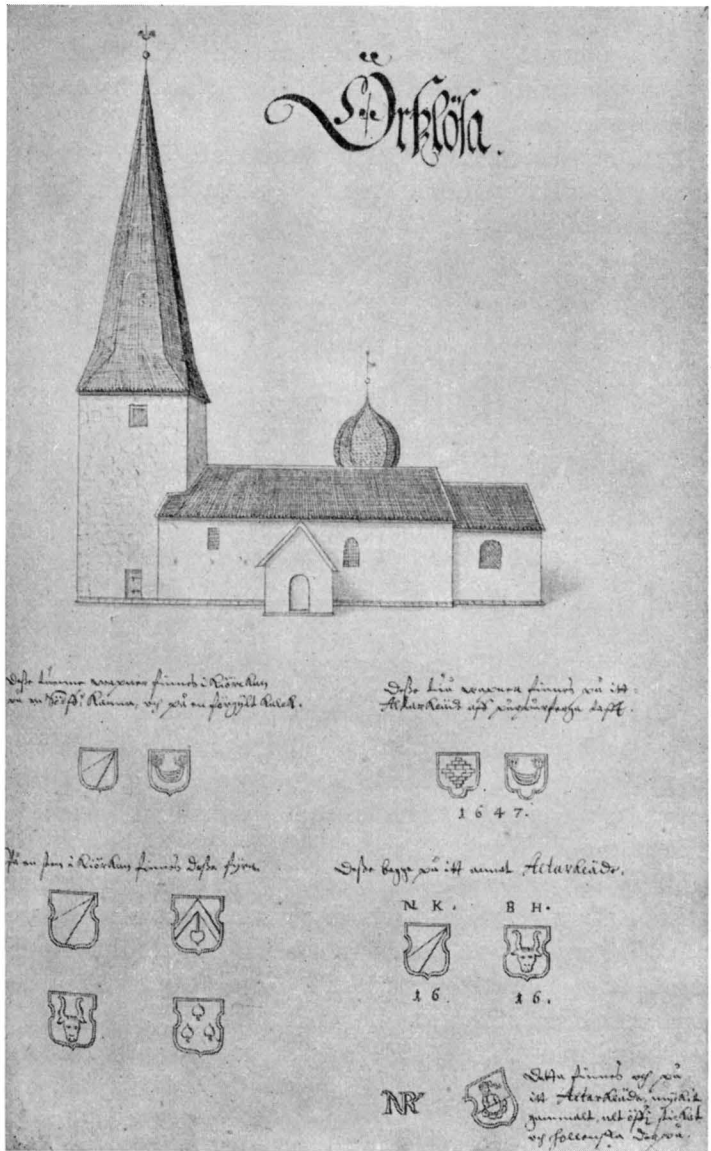 Örklösa.
Desse tuenne wapner finnes i Kiörckan
på en Kanna, och på en förgylt Kalck.
Desse tuå wapner finnes på itt
Altarkläde aff purpurferga tafft.
1647.
På en sten i Kiörckan finnes desse fyra.
Desse begge på itt annat Altarkläde.
N K. B H.
16 16.
NR
Detta finnes och på
itt Altarkläde, myckit
gammalt, alt öffr stickat
och